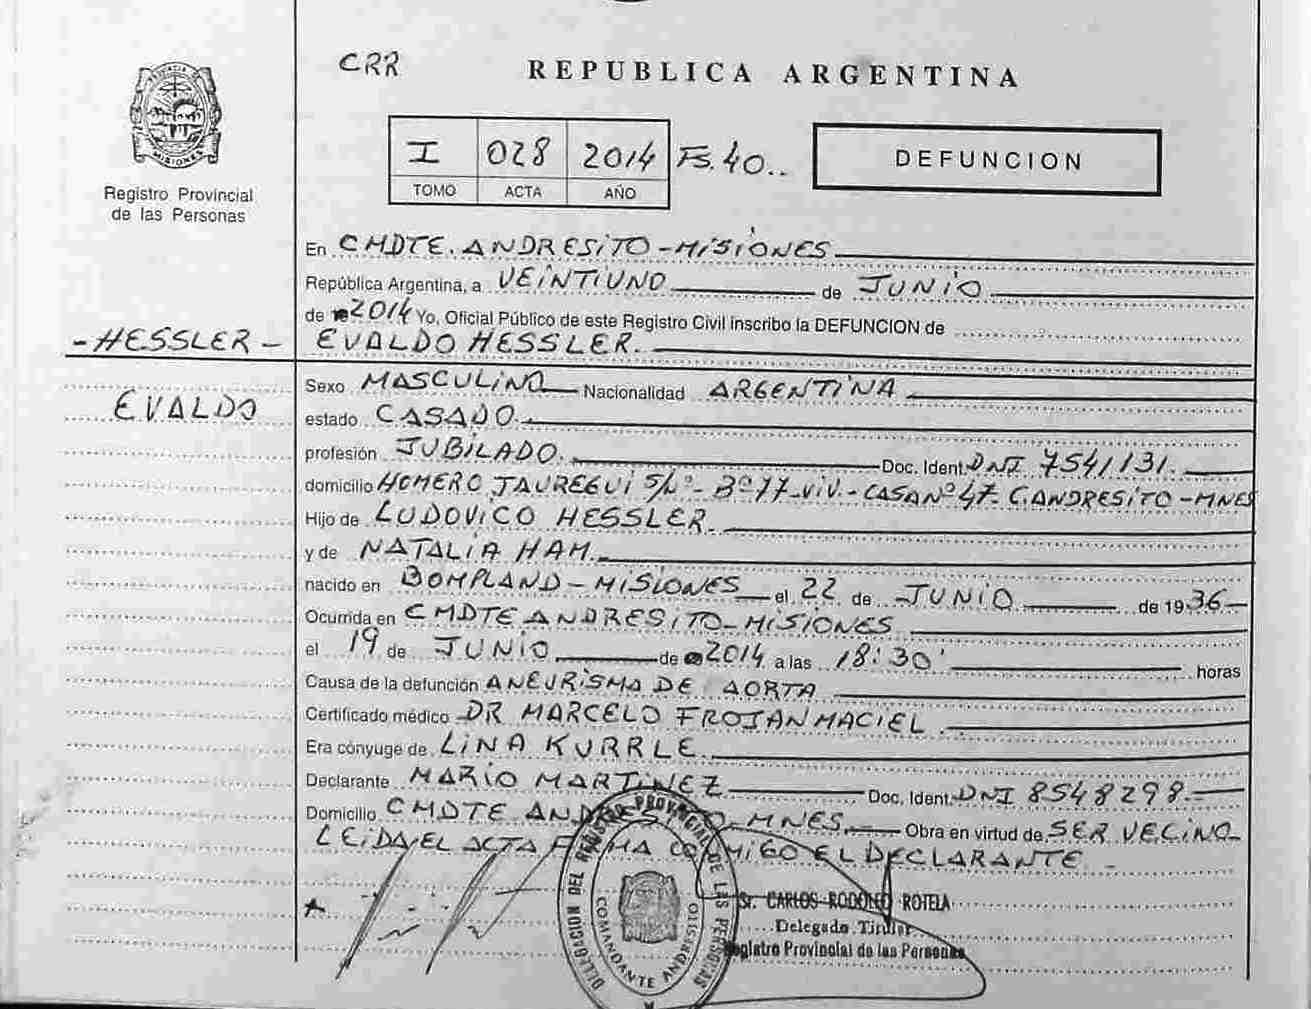 CRR
REPUBLICA ARGENTINA
MISIONES
Registro Provincial
de las Personas
I 028 2014 Fs. 40..
TOMO ACTA AÑO
DEFUNCION
En CMDTE. ANDRESITO - MISIONES
República Argentina, a VEINTIUNO de JUNIO
de 2014 Yo, Oficial Público de este Registro Civil inscribo la DEFUNCION de
- HESSLER -
EVALDO HESSLER.
Sexo MASCULINO Nacionalidad ARGENTINA
EVALDO
estado CASADO.
profesión JUBILADO. Doc. Ident. DNI 7541131.
domicilio HOMERO JAUREGUI S/Nº - Bº 77 - VIV. - CASA Nº 47 - C. ANDRESITO - MNES
Hijo de LUDOVICO HESSLER.
y de NATALIA HAM.
nacido en BOMPLAND - MISIONES el 22 de JUNIO de 1936
Ocurrida en CMDTE ANDRESITO - MISIONES
el 19 de JUNIO de 2014 a las 18:30' horas
Causa de la defunción ANEURISMA DE AORTA
Certificado médico DR MARCELO FROJAN MACIEL
Era cónyuge de LINA KURRLE
Declarante MARIO MARTINEZ Doc. Ident. DNI 8548298.
Domicilio CMDTE ANDRESITO - MNES. Obra en virtud de SER VECINO
LEIDA EL ACTA FIRMA CONMIGO EL DECLARANTE. -
DELEGACION DEL REGISTRO PROVINCIAL DE LAS PERSONAS
COMANDANTE ANDRESITO
Sr. CARLOS RODOLFO ROTELA
Delegado Titular
Registro Provincial de las Personas